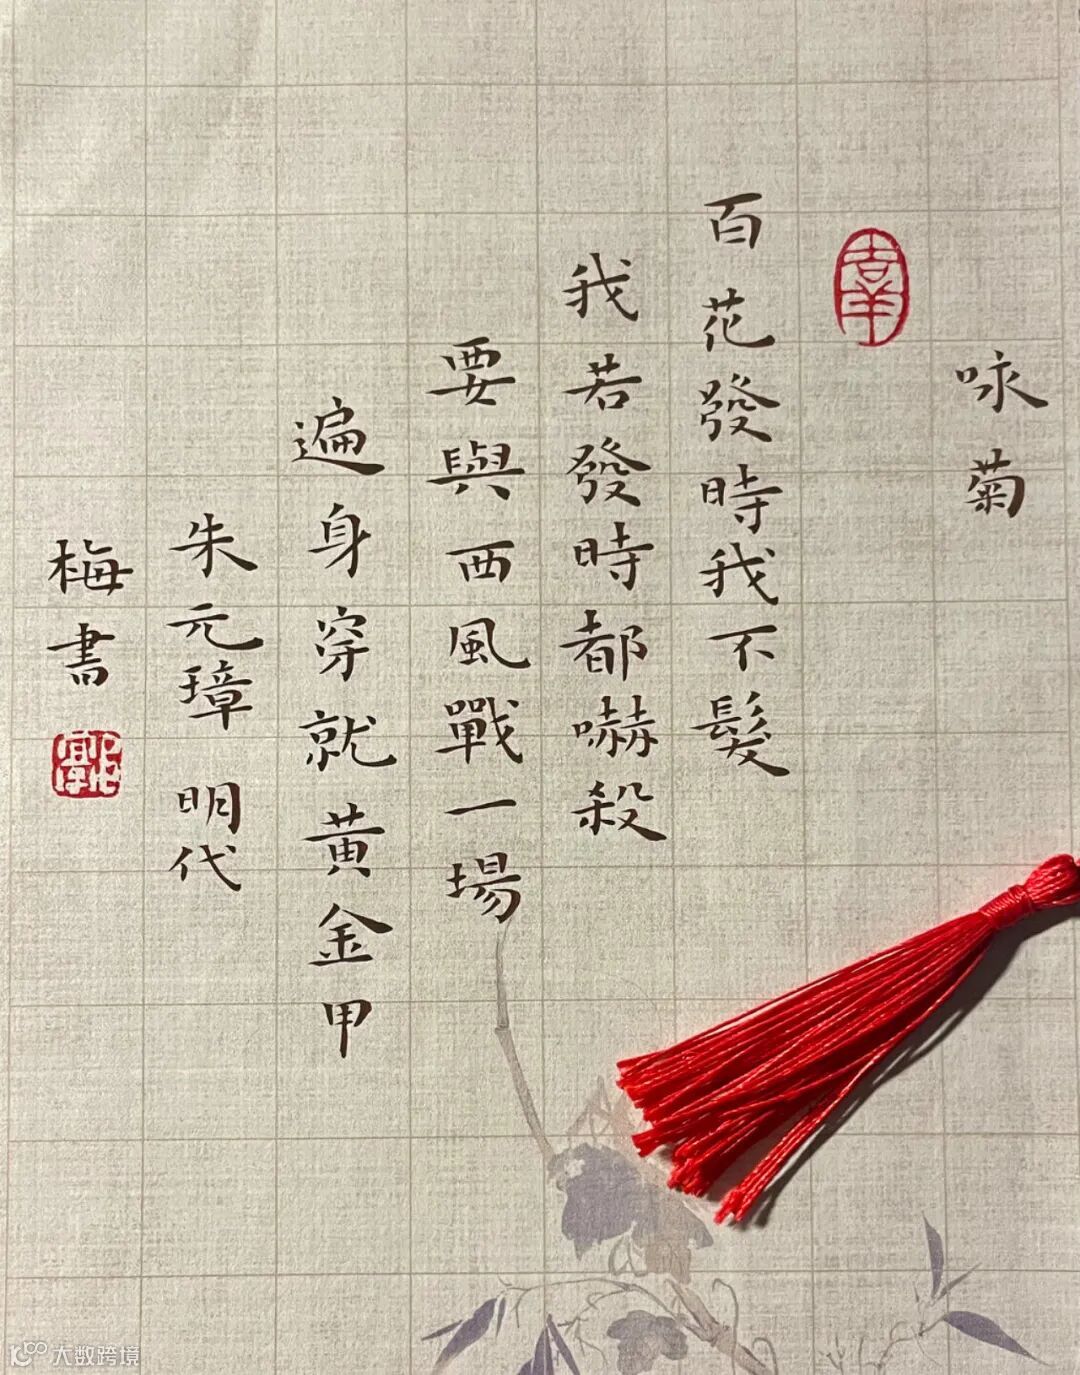 咏菊
百花發時我不髮
我若發時都嚇殺
要與西風戰一場
遍身穿就黄金甲
朱元璋 明代
梅書
大数跨境